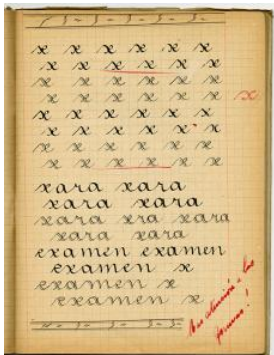 x x x x x x
x x x x x x
x x x x x x
x x x x x x x
x x x x x x
x x x x x x
x x x x x x
x x x x x x
xara xara
xara xara
xara xra xara
xara xara
examen examen
examen x
examen x
examen x
Mas atención a las
formas!